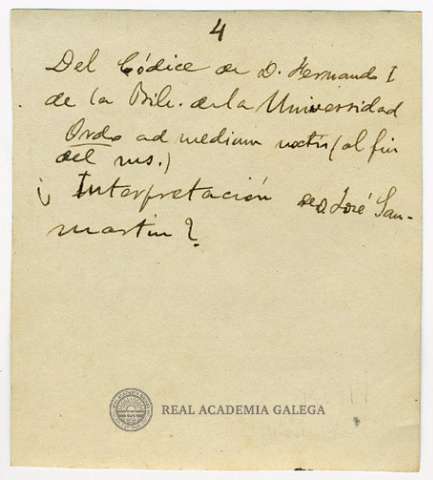 4
Del Códice de D. Hernando I
de la Bibl. de la Universidad
Ordo ad mediam noctis (al fin
del ms.)
¿ Interpretación de D. José San-
martin?
REAL ACADEMIA GALEGA